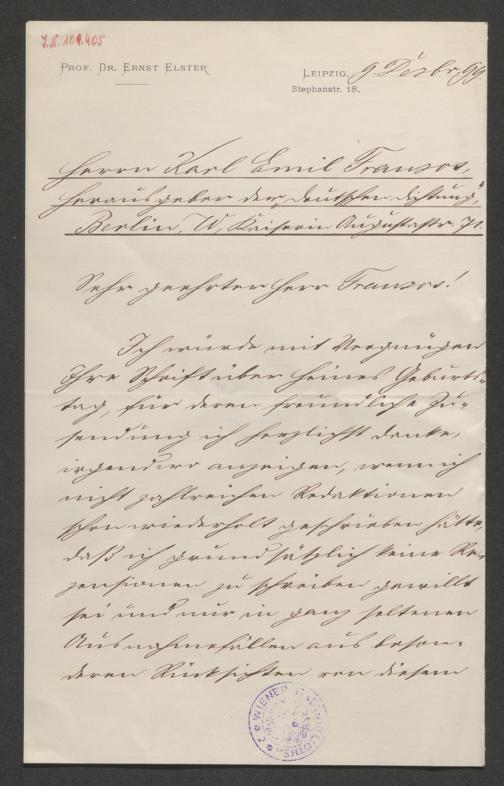 J.N. 109.405
PROF. DR. ERNST ELSTER
LEIPZIG, 9. Dezbr. 99
Stephanstr. 18.
Herrn Karl Emil Franzos,
Herausgeber der „Deutschen Dichtung",
Berlin, W, Kaiserin Augustastr. 71.
Sehr geehrter Herr Franzos!
Ich würde mit Vergnügen
Ihre Schrift über Heines Geburts-
tag, für deren freundliche Zu-
sendung ich herzlichst danke,
irgendwo anzeigen, wenn ich
nicht zahlreichen Redaktionen
schon wiederholt geschrieben hätte,
daß ich grundsätzlich keine Re-
zensionen zu schreiben gewillt
sei und nur in ganz seltenen
Ausnahmefällen aus beson-
deren Rücksichten von diesem
WIENER STADTBIBLIOTHEK